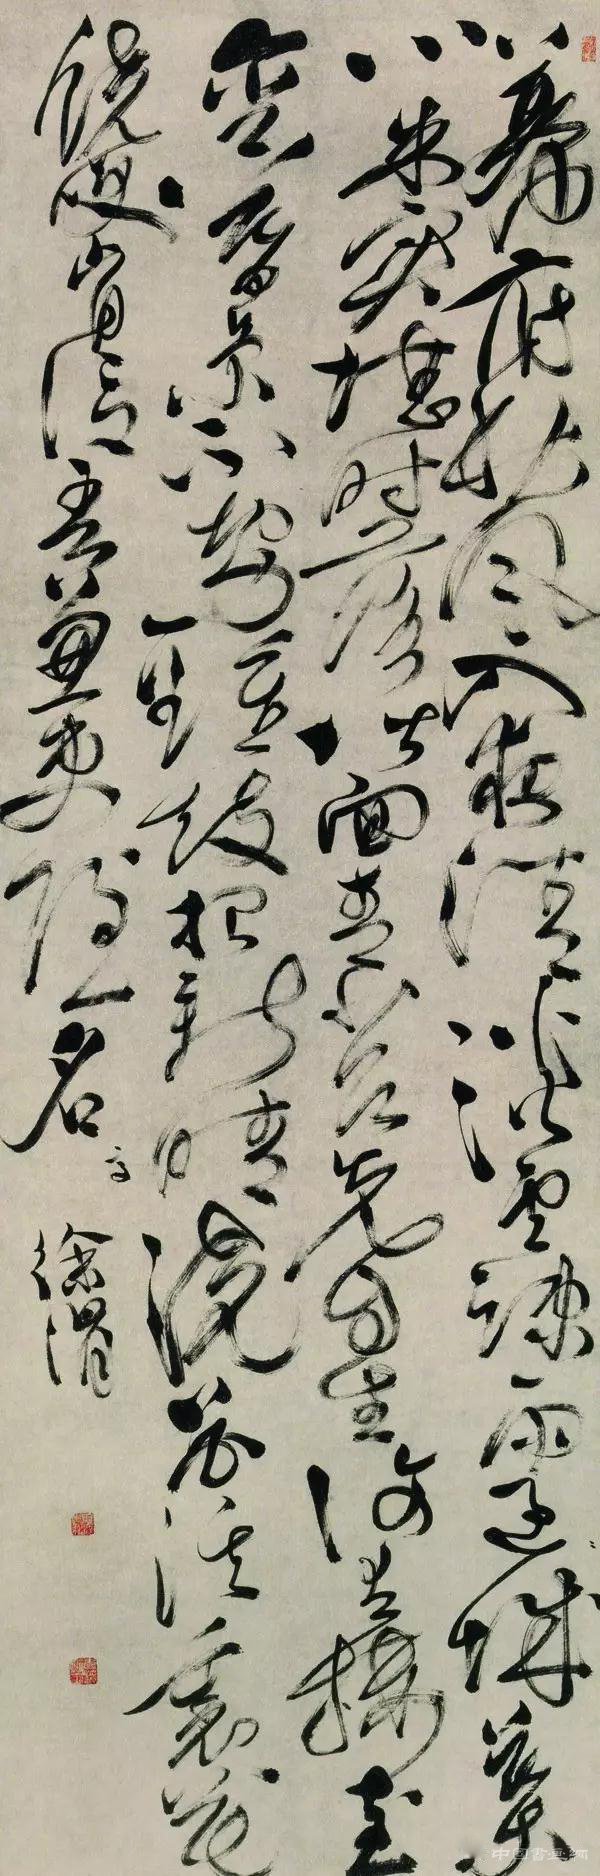 幕府秋風入夜清淡雲疎雨過城葉
心朱實堪時落階面青苔先自生復有樓臺
銜暮景不勞鐘鼓報新晴浣花溪裏花
饒咲肯信吾兼吏隱名
高
徐渭
中国书画网